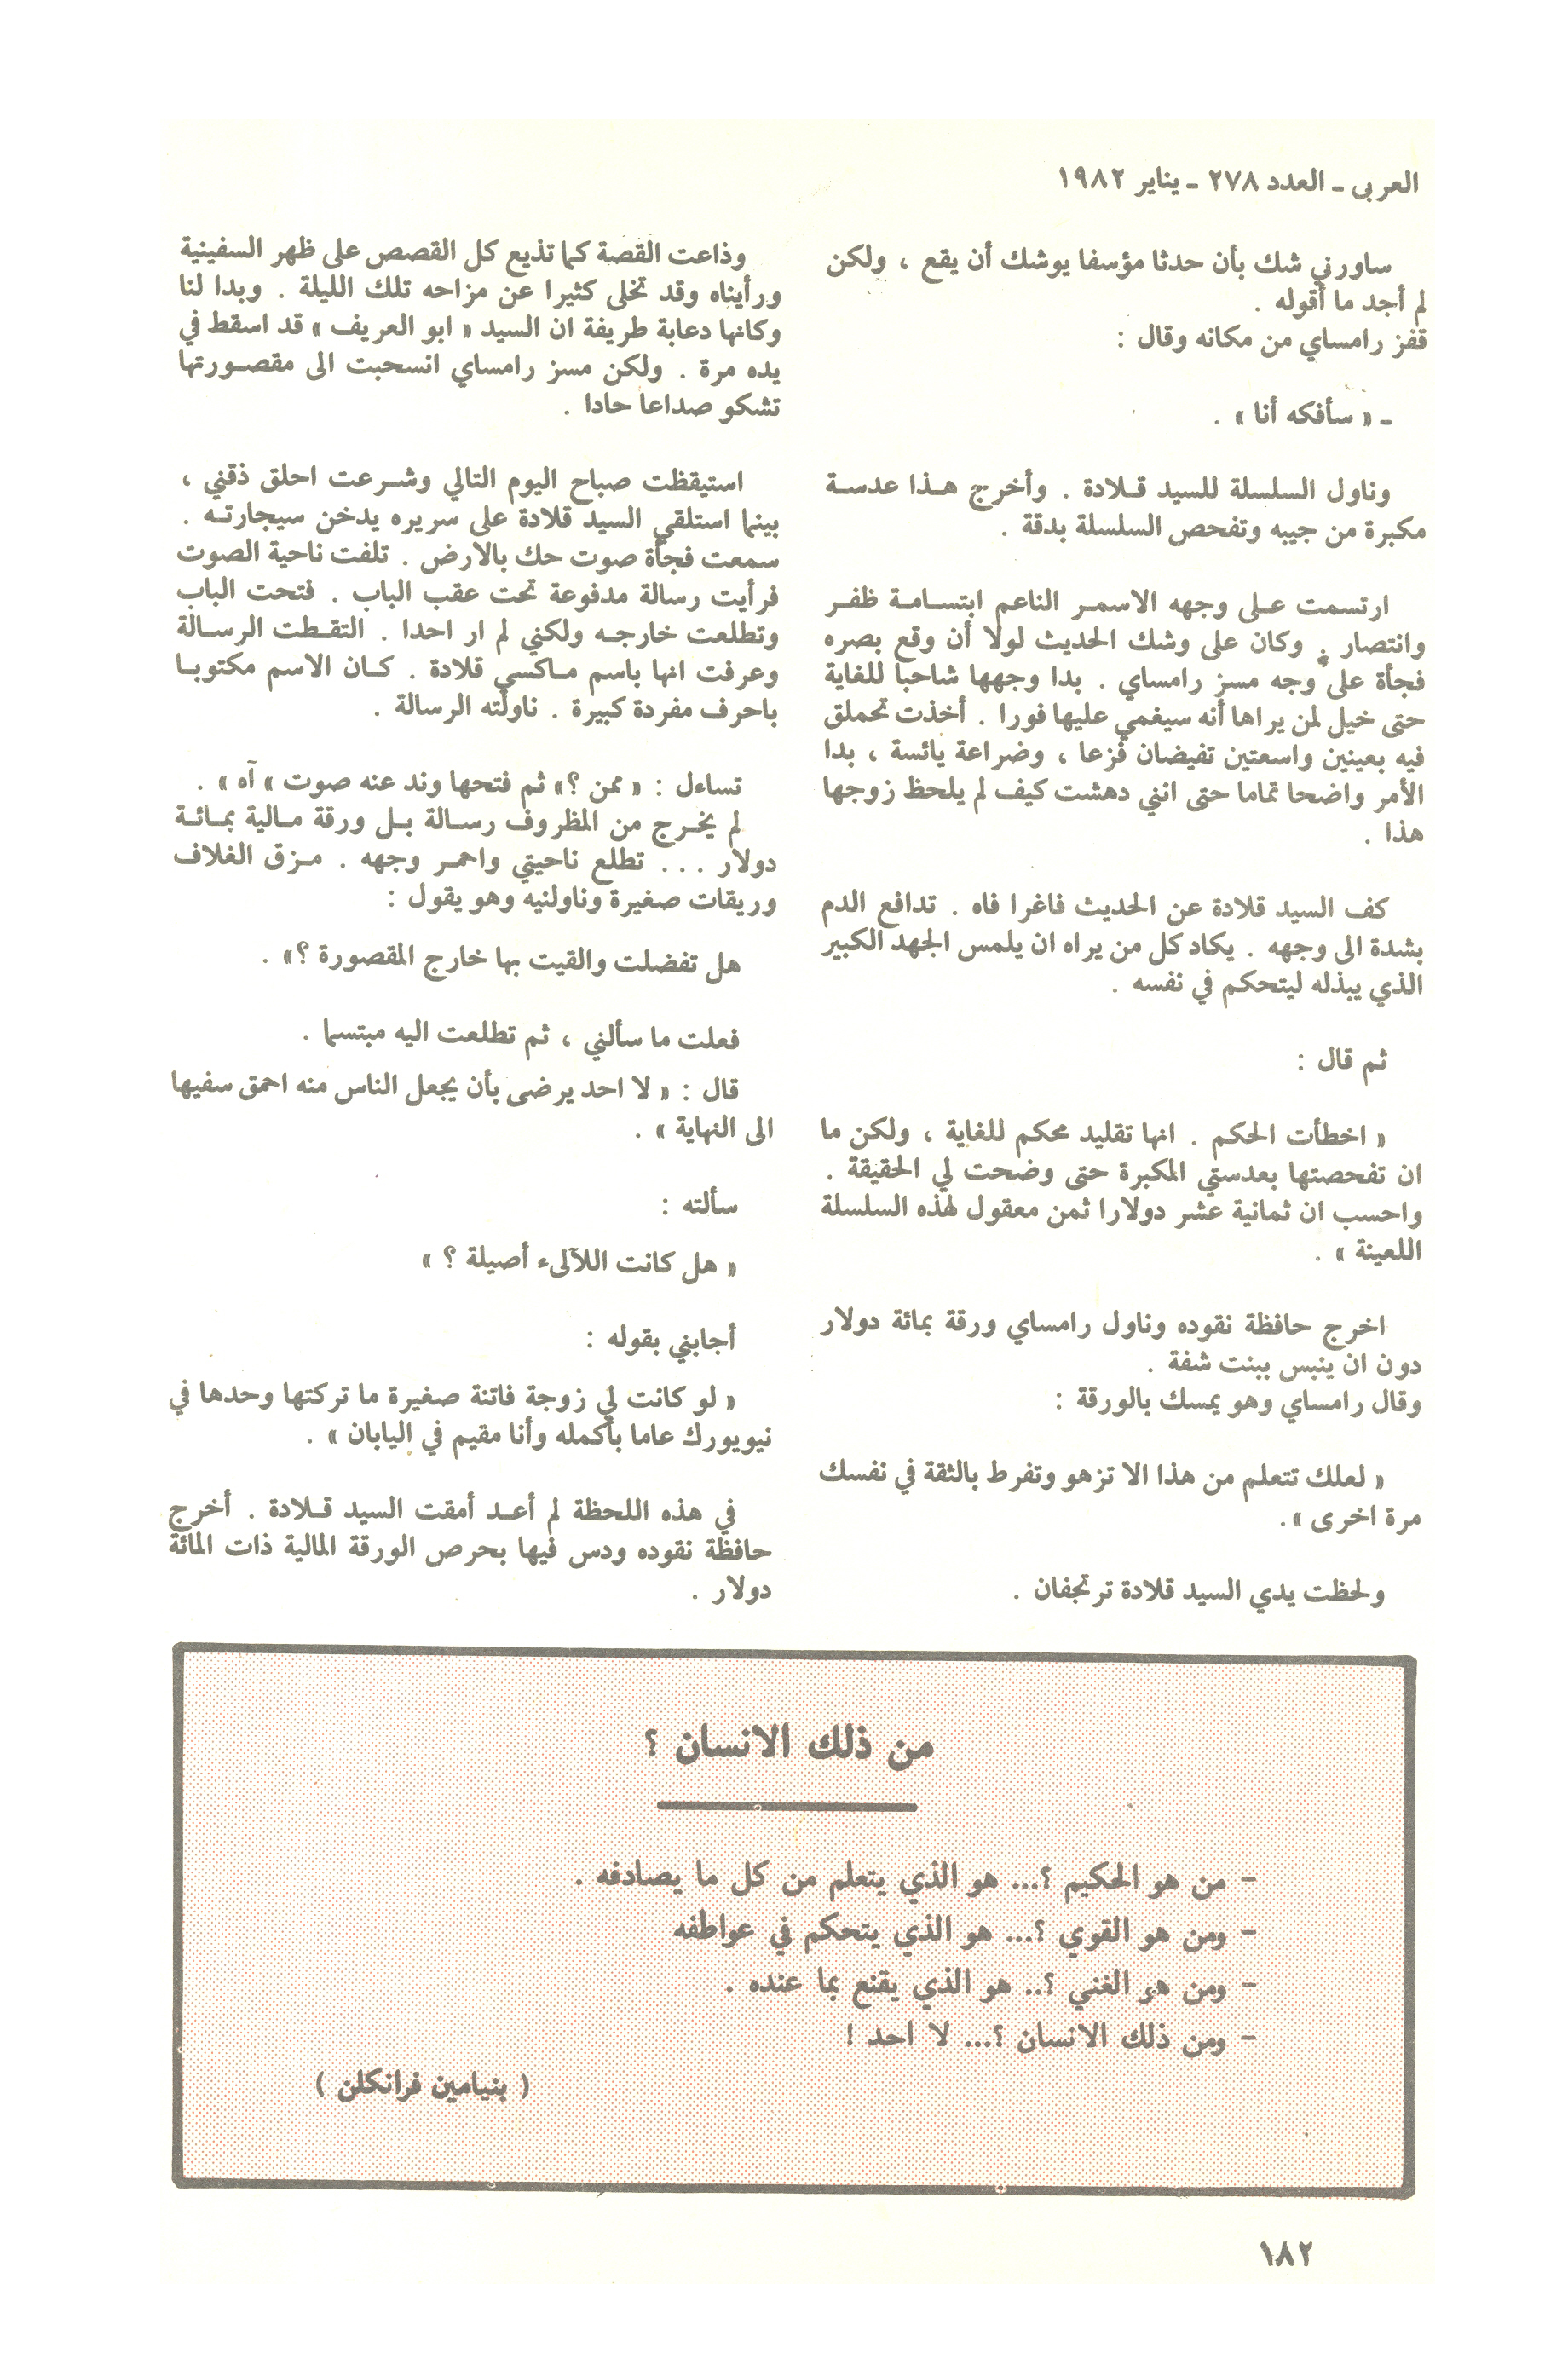 العربي ـ العدد ٢٧٨ ـ يناير ١٩٨٢
ساورني شك بأن حدثا مؤسفا يوشك أن يقع ، ولكن
لم أجد ما أقوله .
قفز رامساي من مكانه وقال :
ـ « سأفكه أنا » .
وناول السلسلة للسيد قـلادة . وأخرج هـذا عدسـة
مكبرة من جيبه وتفحص السلسلة بدقة .
ارتسمت عـلى وجهه الاسمـر الناعم ابتسـامـة ظفـر
وانتصار . وكان على وشك الحديث لولا أن وقع بصره
فجأة على وجه مسز رامساي . بدا وجهها شاحبا للغاية
حتى خيل لمن يراها أنه سيغمي عليها فورا . أخذت تحملق
فيه بعينين واسعتين تفيضان فزعا ، وضراعة يائسة ، بدا
الأمر واضحا تماما حتى انني دهشت كيف لم يلحظ زوجها
هذا .
كف السيد قلادة عن الحديث فاغرا فاه . تدافع الدم
بشدة الى وجهه . يكاد كل من يراه ان يلمس الجهد الكبير
الذي يبذله ليتحكم في نفسه .
ثم قال :
« اخطأت الحكم . انها تقليد محكم للغاية ، ولكن ما
ان تفحصتها بعدستي المكبرة حتى وضحت لي الحقيقة .
واحسب ان ثمانية عشر دولارا ثمن معقول لهذه السلسلة
اللعينة » .
اخرج حافظة نقوده وناول رامساي ورقة بمائة دولار
دون ان ينبس ببنت شفة .
وقال رامساي وهو يمسك بالورقة :
« لعلك تتعلم من هذا الا تزهو وتفرط بالثقة في نفسك
مرة اخرى ».
ولحظت يدي السيد قلادة ترتجفان .
وذاعت القصة كما تذيع كل القصص على ظهر السفينية
ورأيناه وقد تخلى كثيرا عن مزاحه تلك الليلة . وبدا لنا
وكانها دعابة طريفة ان السيد « ابو العريف » قد اسقط في
يده مرة . ولكن مسز رامساي انسحبت الى مقصـورتها
تشكو صداعا حادا .
استيقظت صباح اليوم التالي وشـرعت احلق ذقني ،
بينما استلقي السيد قلادة على سريره يدخن سيجارتـه .
سمعت فجأة صوت حك بالارض . تلفت ناحية الصوت
فرأيت رسالة مدفوعة تحت عقب الباب . فتحت الباب
وتطلعت خارجـه ولكني لم ار احدا . التقـطت الرسـالة
وعرفت انها باسم مـاكسي قلادة . كـان الاسم مكتوبـا
باحرف مفردة كبيرة . ناولته الرسالة .
تساءل : « ممن ؟» ثم فتحها وند عنه صوت » آه » .
لم يخـرج من المظروف رسـالة بـل ورقة مـالية بمـائـة
دولار ... تطلع ناحيتي واحمـر وجهه . مـزق الغلاف
وريقات صغيرة وناولنيه وهو يقول :
هل تفضلت والقيت بها خارج المقصورة ؟» .
فعلت ما سألني ، ثم تطلعت اليه مبتسما .
قال : « لا احد يرضى بأن يجعل الناس منه احمق سفيها
الى النهاية » .
سألته :
« هل كانت اللآلىء أصيلة ؟ »
أجابني بقوله :
« لو كانت لي زوجة فاتنة صغيرة ما تركتها وحدها في
نيويورك عاما بأكمله وأنا مقيم في اليابان » .
في هذه اللحظة لم أعـد أمقت السيد قـلادة . أخرج
حافظة نقوده ودس فيها بحرص الورقة المالية ذات المائة
دولار .
من ذلك الانسان ؟
– من هو الحكيم ؟... هو الذي يتعلم من كل ما يصادفه .
– ومن هو القوي ؟... هو الذي يتحكم في عواطفه
– ومن هو الغني ؟.. هو الذي يقنع بما عنده .
– ومن ذلك الانسان ؟... لا احد !
( بنيامين فرانكلن )
١٨٢